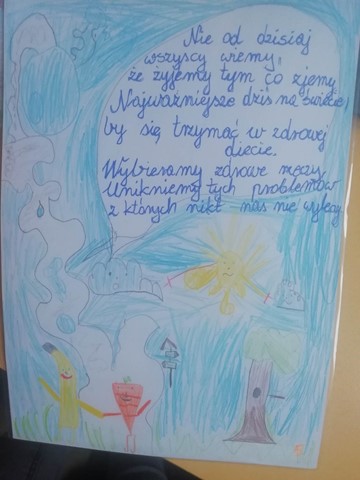 Nie od dzisiaj
wszyscy wiemy,
że żyjemy tym co zjemy
Najważniejsze dziś na świecie,
by się trzymać w zdrowej
diecie.
Wybieramy zdrowe rzeczy
Unikniemy tych problemów
z których nikt nas nie wyleczy.